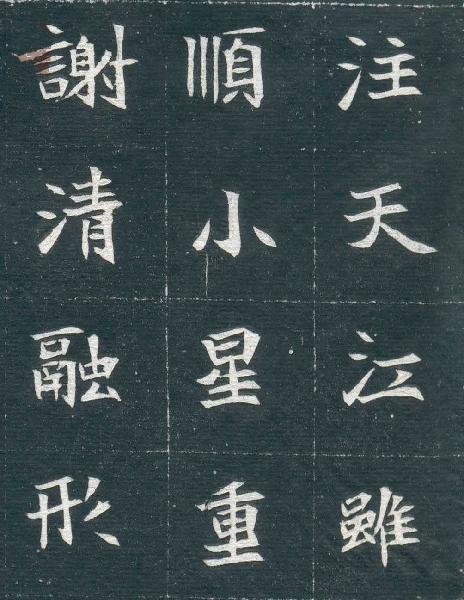 注天江雖
順小星重
謝清融形